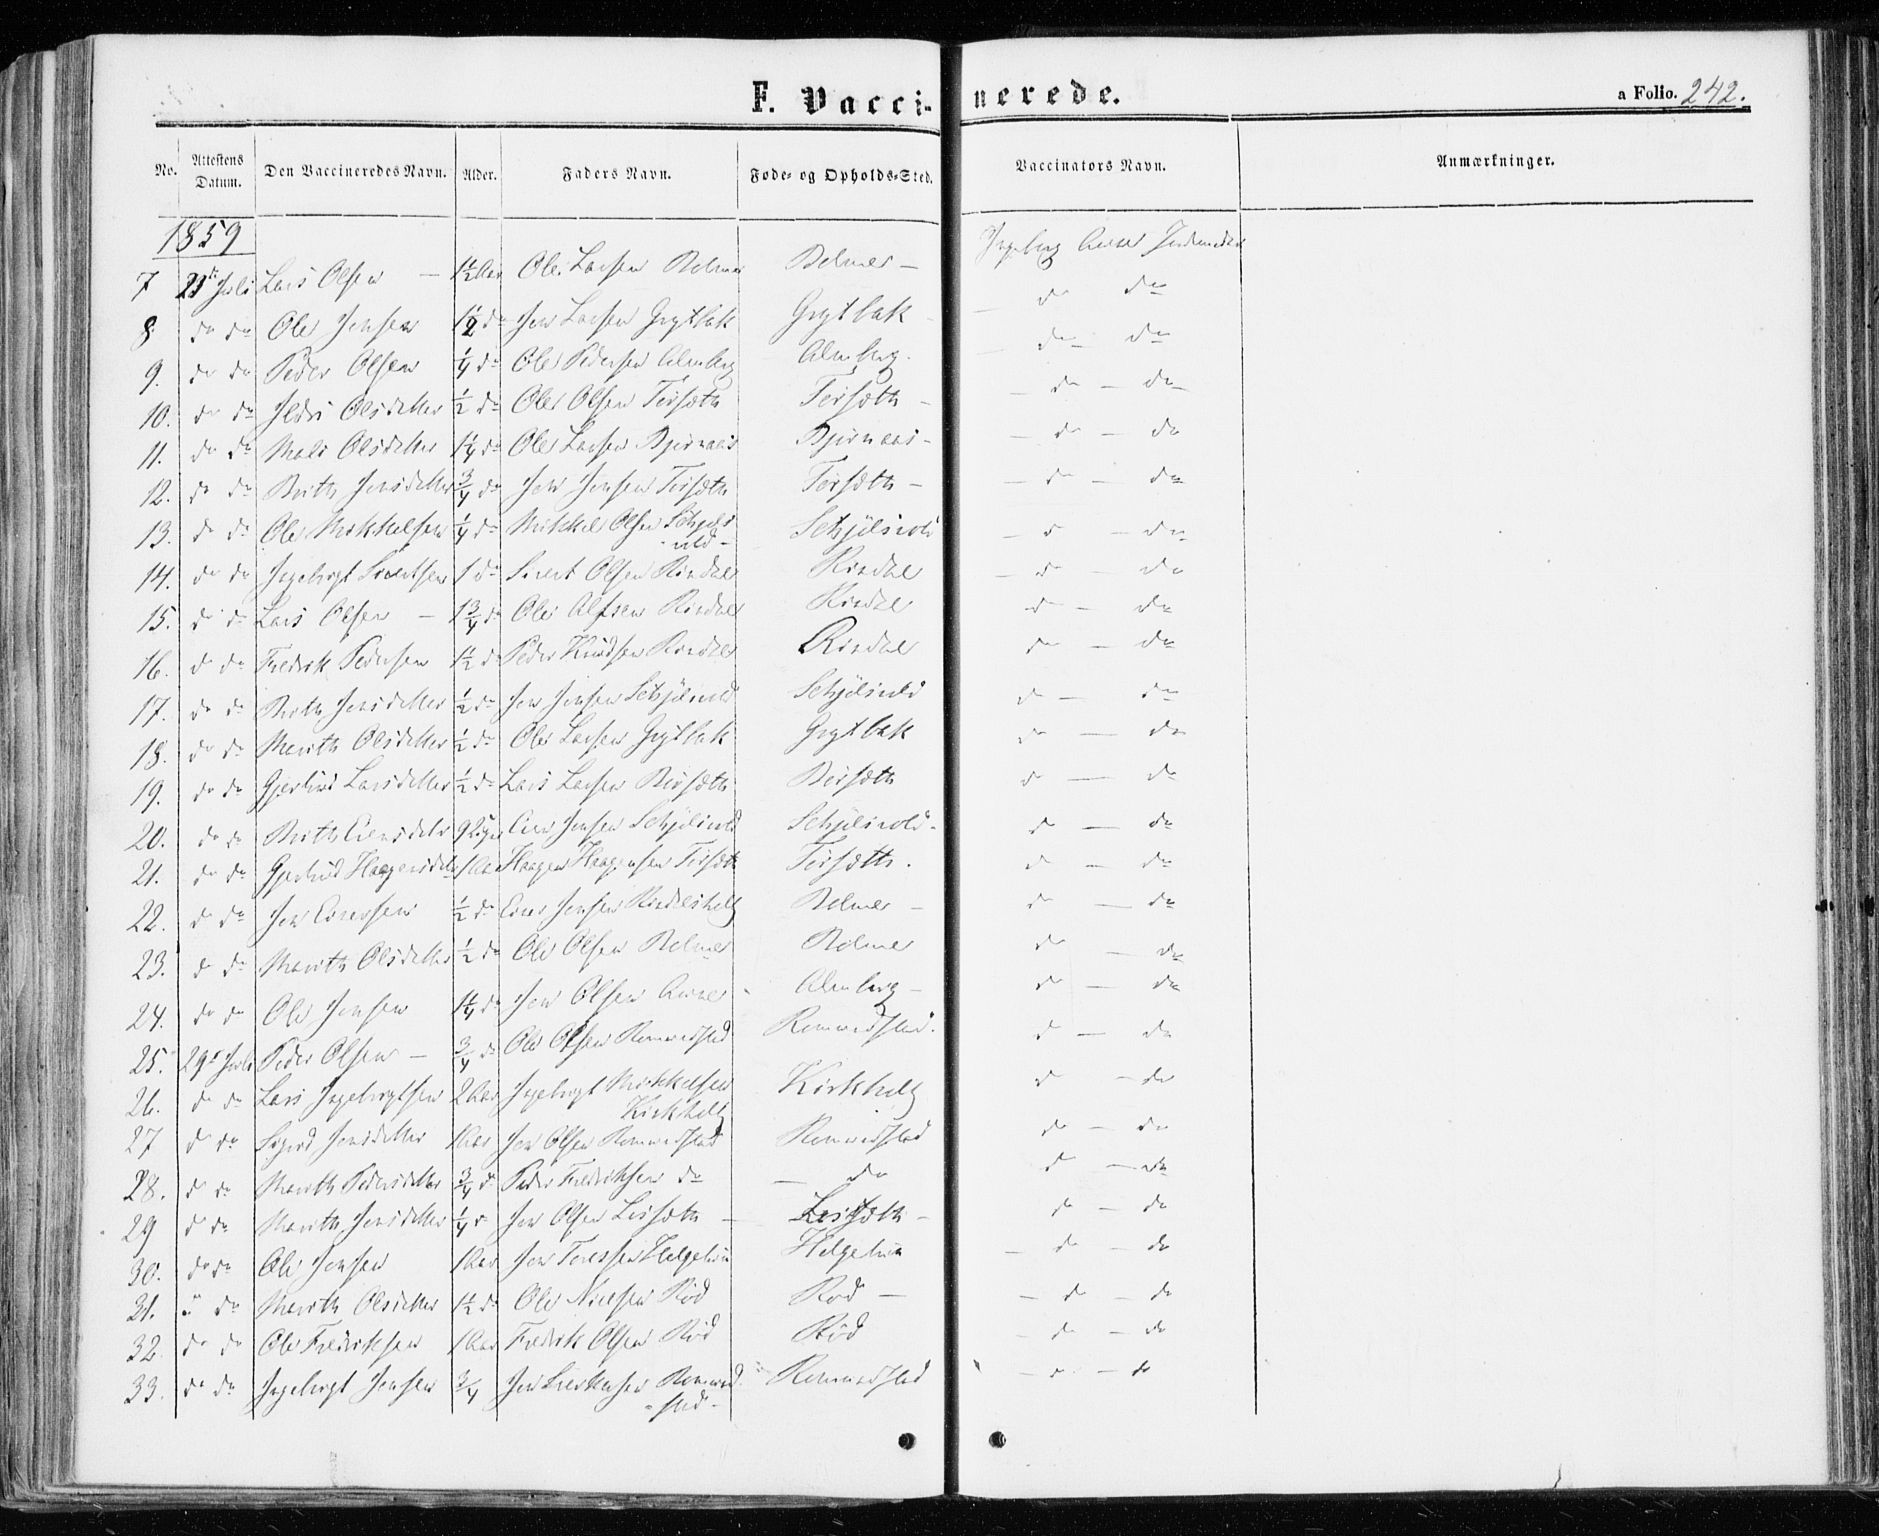 F. Vaccinerede. a Folio. 242.
No. Attestens Datum. Den Vaccineredes Navn. Alder. Faders Navn. Føde- og Opholds-Sted. Vaccinators Navn. Anmærkninger.
1859
7 Juli Lars Olsen — 1½ Aar Ole Larsen Bolme Bolme — Ingebrigt
8. do do Ole Jonsen 1½ do Jon Larsen Grytbak Grytbak — do do
9. do do Peder Olsen ¼ do Ole Pedersen Almberg Almberg. — do do
10. do do Olsdatter ½ do Ole Olsen Torsæth Torsæth — do — do
11. do do Mali Olsdatter 1¼ do Ole Larsen Bjørnaas Bjørnaas — do — do
12. do do Brith Jonsdatter ¾ do Jon Jonsen Torsæth Torsæth — do — do
13. do do Ole Mikkelsen ¼ do Mikkel Olsen Schjølsvold Schjølsvold — do — do
14. do do Ingebrigt Sivertsen 1 do Sivert Olsen Rindal Rindal — do — do
15. do do Lars Olsen — 1¾ do Ole Alfsen Rindal Rindal do — do
16. do do Fredrik Pedersen 1½ do Peder Knudsen Rindal Rindal do — do
17. do do Brith Jonsdatter ½ do Jon Jonsen Schjølsvold Schjølsvold do — do
18. do do Marith Olsdatter ½ do Ole Larsen Grytbak Grytbak do — do
19. do do Gjertrud Larsdatter ½ do Lars Larsen Børsæth Børsæth do — do
20. do do Brith 9 Jonsen Schjølsvold Schjølsvold. do — do
21. do do Gjertrud Haagensdatter 1 Aar Haagen Haagensen Torsæth Torsæth. do — do
22. do do Jon Einersen ½ do Einer Jonsen Bolme — do — do
23. do do Marith Olsdatter ½ do Ole Olsen Bolme Bolme do — do
24. do do Ole Jonsen 1¼ do Jon Olsen Almberg — do — do
25. 29de Juli Peder Olsen — ¾ do Ole Olsen Romundstad Romundstad. do — do
26. do do Lars Ingebrigtsen 2 Aar Ingebrigt Mikkelsen Kirkholt Kirkholt do — do
27 do do Sigrid Jonsdatter 1 Aar Jon Olsen Romundstad Romundstad do — do
28. do do Marith Pedersdatter ¾ do Peder Fredriksen do — do do — do
29 do do Marith Jonsdatter ¼ do Jon Olsen Løsæth — Løsæth — do — do
30. do do Ole Jonsen 1 Aar Jon Helgetun Helgetun — do — do
31. do do Marith Olsdatter 1½ do Ole Nielsen Rød Rød — — do — do
32 do do Ole Fredriksen 1 Aar Fredrik Olsen Rød Rød — do — do
33. do do Ingebrigt Jonsen ¾ Jon Romundstad Romundstad — do — do